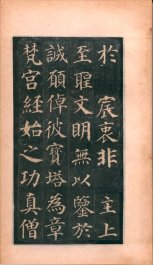 於　宸衷非　主上
至聖文明無以鑒於
誠願倬彼寶塔為章
梵宮經始之功真僧